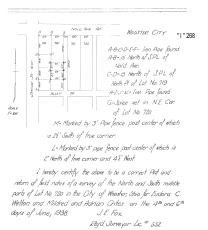 NOLD AVE. 45'
WOOSTER CITY
"I" 268
A-B-C-D-E-F- Iron Pins found.
A-B-.15' North of S.P.L. of
Nold Ave.
C-D-.15' North of S.P.L. of
North ½ of Lot No 720
Iron Pins found.
G-Spike set in N.E. Cor.
of Lot No 720
ALLEY
M- Marked by 3" Pipe fence post center of which
is .25' South of true corner.
L- Marked by 3" pipe fence post center of which is
North of true corner and .45' West.
I hereby certify the above to be a correct Plat and
return of field notes of a survey of the North and South middle
parts of Lot No 720 in the City of Wooster, Ohio for Eudora C.
Welton and Mildred and Adrian Crites on the 4th and 6th
days of June, 1938.
J.E. Fox
Reg'd Surveyor Lic # 552